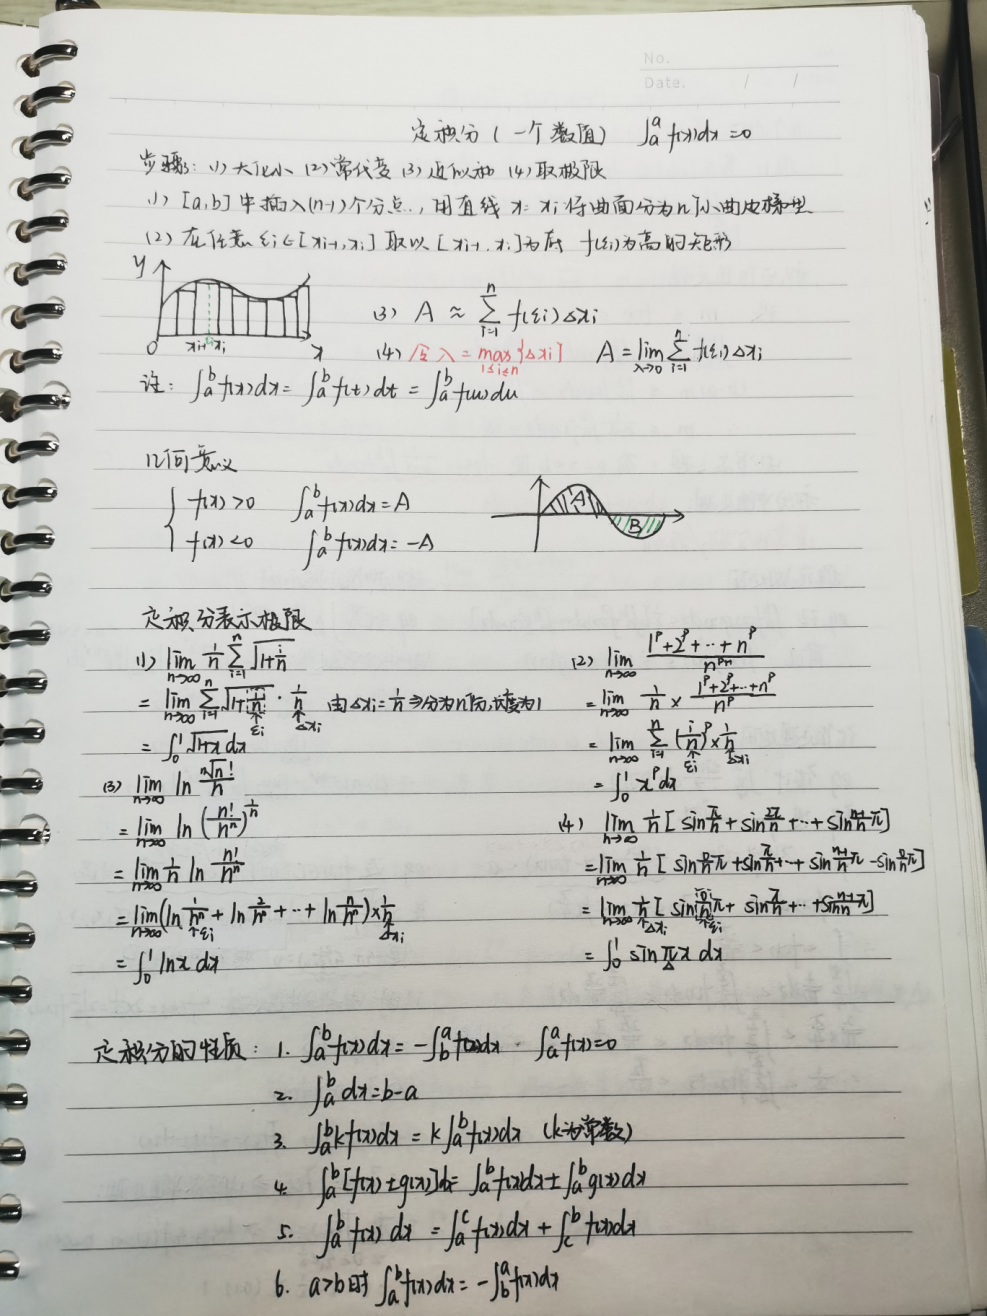 No.
Date. / /
定积分(一个数值) ∫ₐᵃ f(x)dx=0
步骤: (1) 大化小 (2)常代变 (3)近似和 (4)取极限
(1) [a,b]中插入(n-1)个分点.., 用直线 x=xi 将曲面分为n个小曲边梯型
(2) 在任意 ξi∈[xi-1,xi] 取以 [xi-1,xi]为底 f(ξi)为高的矩形
y
0 xi-1 xi x
(3) A ≈ ∑_{i=1}^{n} f(ξi)Δxi
(4) 令λ=max_{1≤i≤n}{Δxi} A=lim_{λ→0} ∑_{i=1}^{n} f(ξi)Δxi
注: ∫ₐᵇ f(x)dx = ∫ₐᵇ f(t)dt = ∫ₐᵇ f(u)du
几何意义
f(x)>0 ∫ₐᵇ f(x)dx=A
f(x)<0 ∫ₐᵇ f(x)dx=-A
A
B
定积分表示极限
(1) lim_{n→∞} 1/n ∑_{i=1}^{n} √(1+i/n)
= lim_{n→∞} ∑_{i=1}^{n} √(1+i/n) · 1/n 由Δxi=1/n ⇒分为n份,长度为1
↑ξi ↑Δxi
= ∫₀¹ √(1+x) dx
(2) lim_{n→∞} (1^p+2^p+…+n^p)/n^{p+1}
= lim_{n→∞} 1/n × (1^p+2^p+…+n^p)/n^p
= lim_{n→∞} ∑_{i=1}^{n} (i/n)^p × 1/n
↑ξi ↑Δxi
= ∫₀¹ x^p dx
(3) lim_{n→∞} ln (ⁿ√n!)/n
= lim_{n→∞} ln (n!/nⁿ)^{1/n}
= lim_{n→∞} 1/n ln n!/nⁿ
= lim_{n→∞} (ln 1/nⁿ + ln 2/nⁿ + … + ln n/nⁿ) × 1/n
↑ξi ↑Δxi
= ∫₀¹ lnx dx
(4) lim_{n→∞} 1/n [sin π/n + sin 2π/n + … + sin (n-1)/n π]
= lim_{n→∞} 1/n [sin 0/n π + sin π/n + … + sin (n-1)/n π - sin 0/n π]
= lim_{n→∞} 1/n [sin 0/n π + sin π/n + … + sin (n-1)/n π]
↑Δxi ↑ξi
= ∫₀¹ sin πx dx
定积分的性质: 1. ∫ₐᵇ f(x)dx = -∫_b^a f(x)dx · ∫ₐᵃ f(x)=0
2. ∫ₐᵇ dx=b-a
3. ∫ₐᵇ kf(x)dx = k∫ₐᵇ f(x)dx (k为常数)
4. ∫ₐᵇ [f(x)±g(x)]dx= ∫ₐᵇ f(x)dx±∫ₐᵇ g(x)dx
5. ∫ₐᵇ f(x) dx = ∫_a^c f(x)dx + ∫_c^b f(x)dx
6. a>b时 ∫ₐᵇ f(x)dx = -∫_b^a f(x)dx